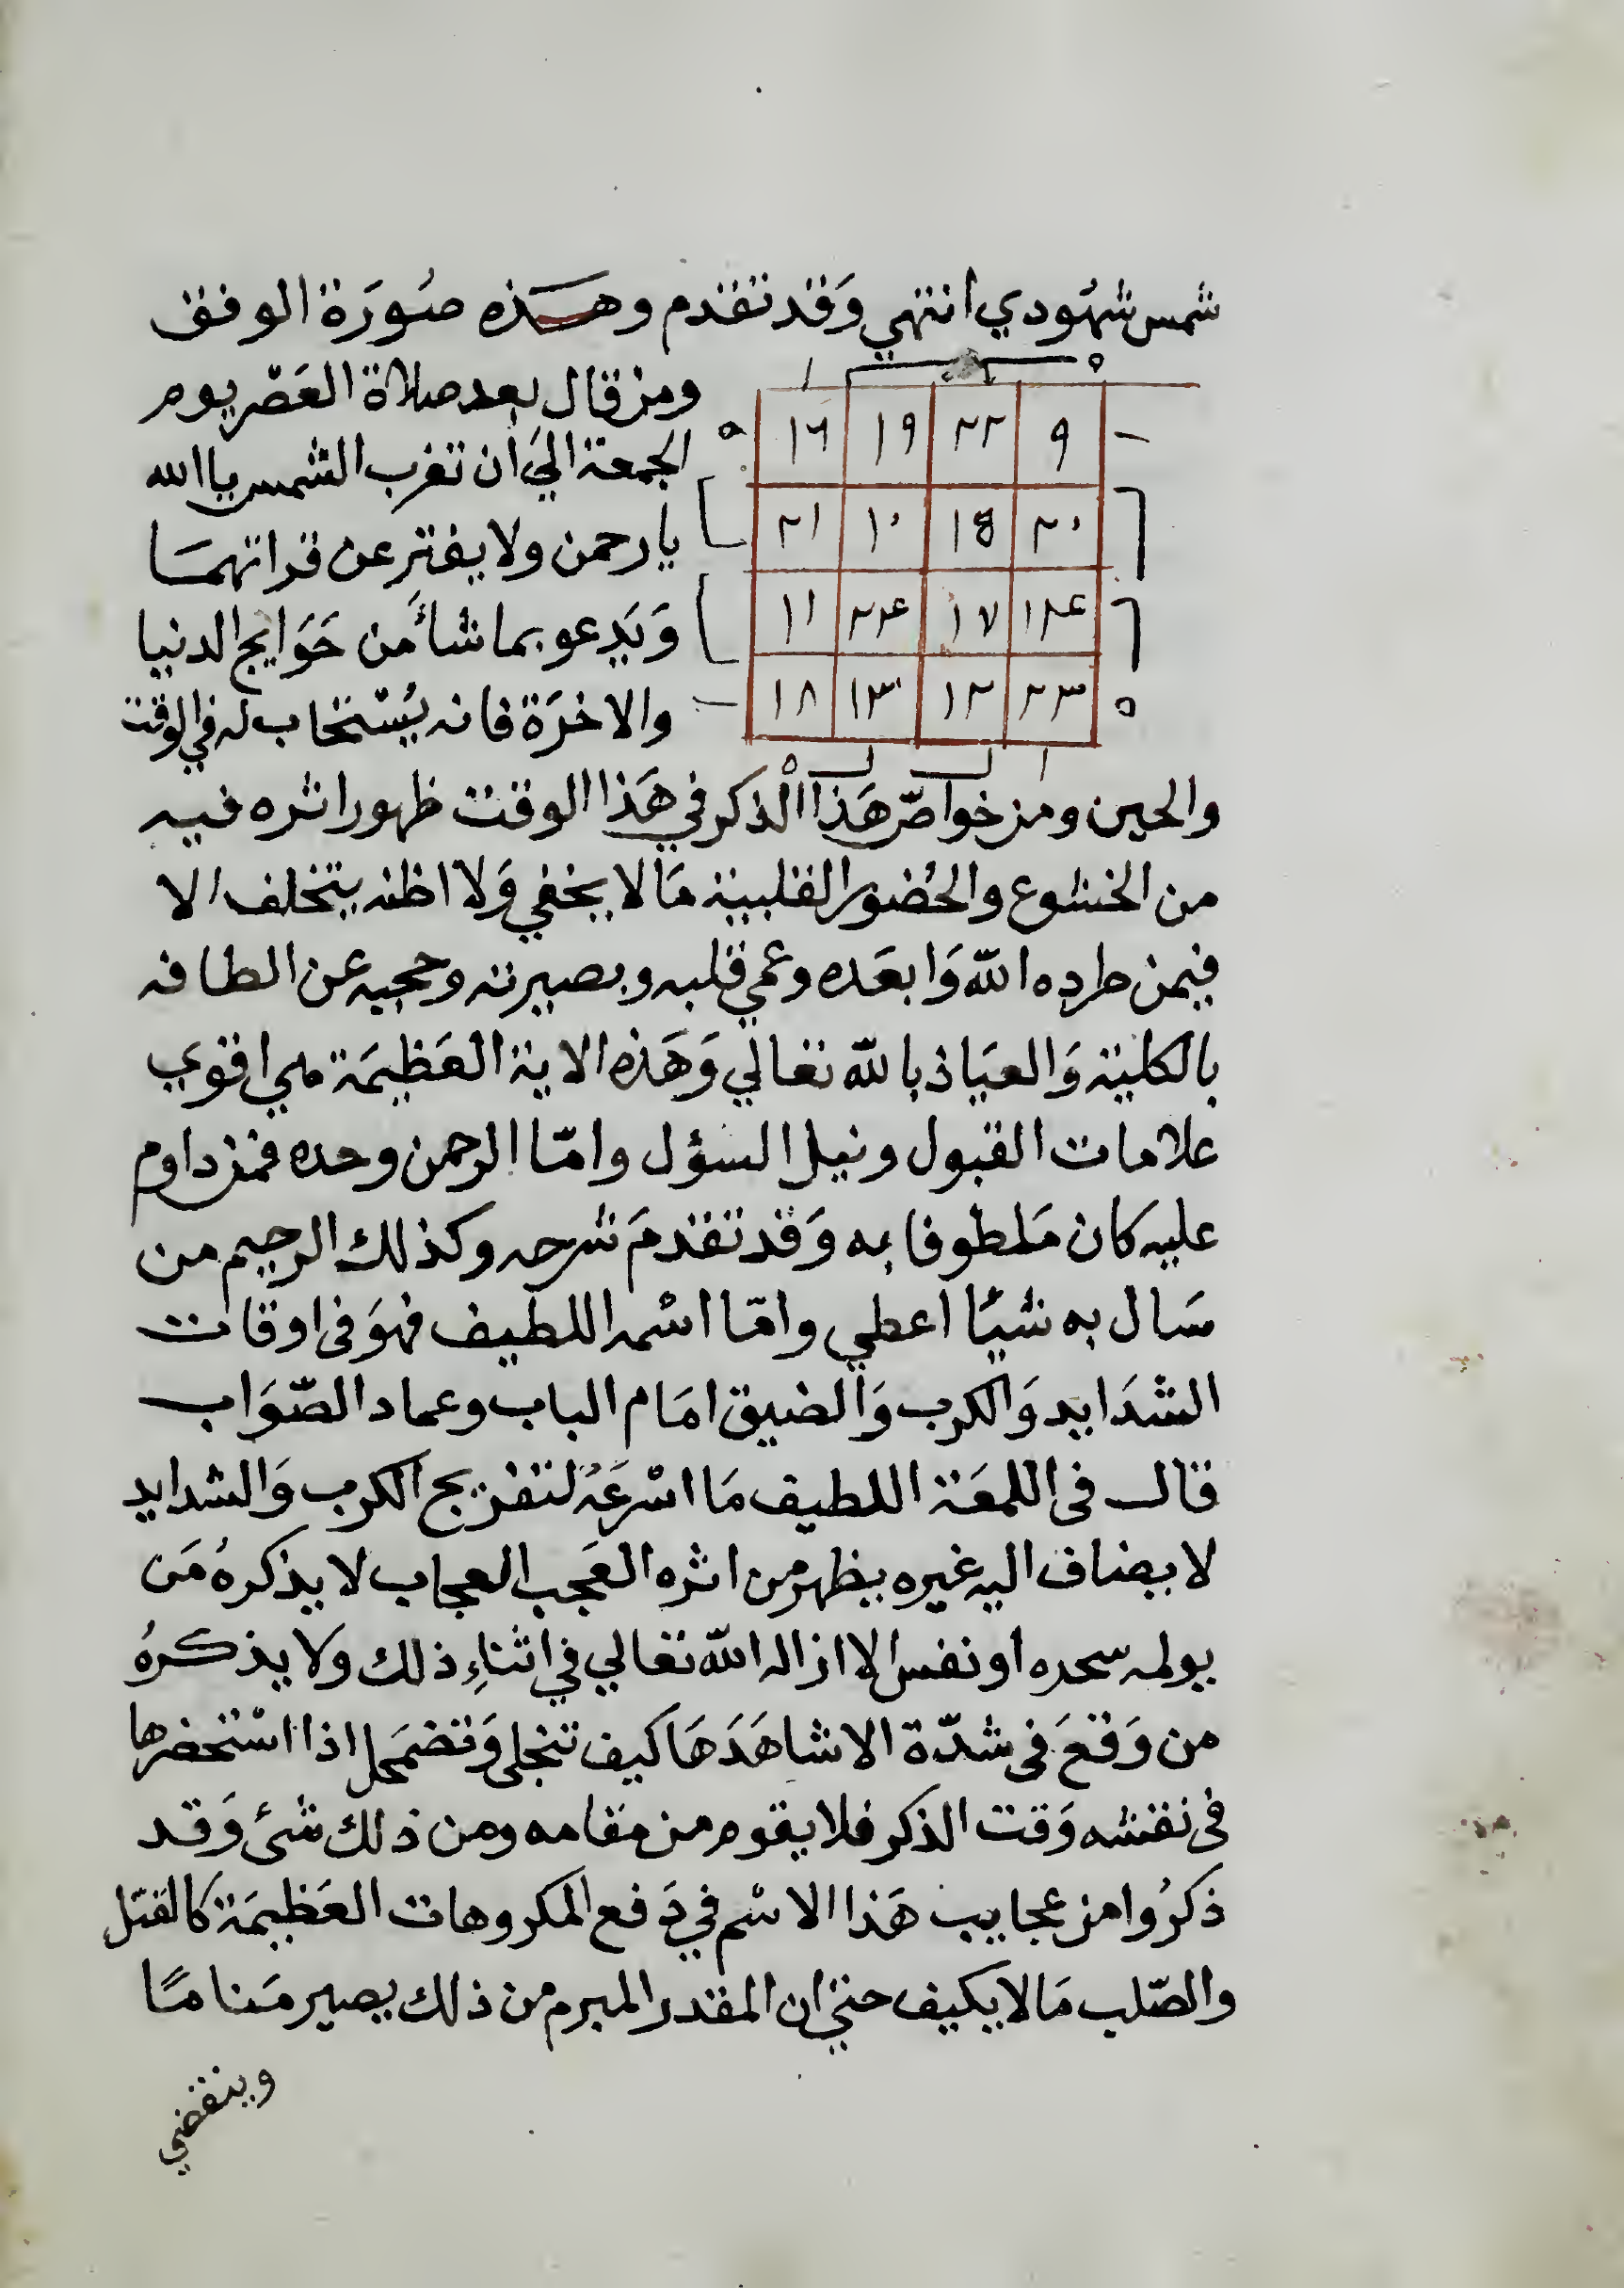 شمس شهودي انتهي وَقد تقدم وهذه صُورَة الوفق
ومن قال بعد صلاة العَصْر يوم
الجمعة اليَ ان تغرب الشمس يا الله
يا رحمن ولا يفتر عن قراتهما
وَيَدعو بما شأَ من حَوَايج الدنيا
والاخرَة فانه يُسْتجاب له في الوقت
٩ ٢٢ ١٩ ١٦
٢٠ ١٥ ١٠ ٢١
١٤ ١٧ ٢٤ ١١
٢٣ ١٢ ١٣ ١٨
والحين ومن خواصّ هَذا الذكر في هَذا الوقت ظهور اثره فيه
من الخشوع والحُضور القلبية مَا لا يخفي وَلا اظنه يتخلف الا
فيمن طرده الله وَابعَده وعمي قلبه وبصيرته وحجبه عن الطافه
بالكلية وَالعيَاذ بالله تعالي وَهَذه الاية العَظِيمَة هي اقوي
علامات القبول ونيل السؤل وامّا الرحمن وحده فمن داوم
عليه كان مَلطوفا به وَقد تقدمَ شرحه وكذلك الرحيم من
سَال به شيًا اعطي وامّا اسْمه اللطيف فهوَ فى اوقات
الشدَايد وَالكرب وَالضيق امَام الباب وعماد الصّوَاب
قال فى اللمعَة اللطيف مَا اسْرعَهُ لتفريج الكرب وَالشدايد
لا يضاف اليه غيره يظهر من اثره العَجب العجاب لا يذكرهُ مَن
يولمه سحره او نفس الا ازاله الله تعالي في اثناءِ ذلك ولا يذكرهُ
من وَقعَ فى شدّة الا شاهَدَهَا كيف تنجلى وَتضمَحل اذا اسْتحضرها
فى نفسه وَقت الذكر فلا يقوم من مقامه ومن ذلك شئ وَقد
ذكرُوا من عجايب هَذا الاسْم في دَفع المكروهات العَظِيمَة كالقتل
والصّلب مَا لا يكيف حتي ان المقدر المبرم من ذلك يصير مَنامًا
وينقضي